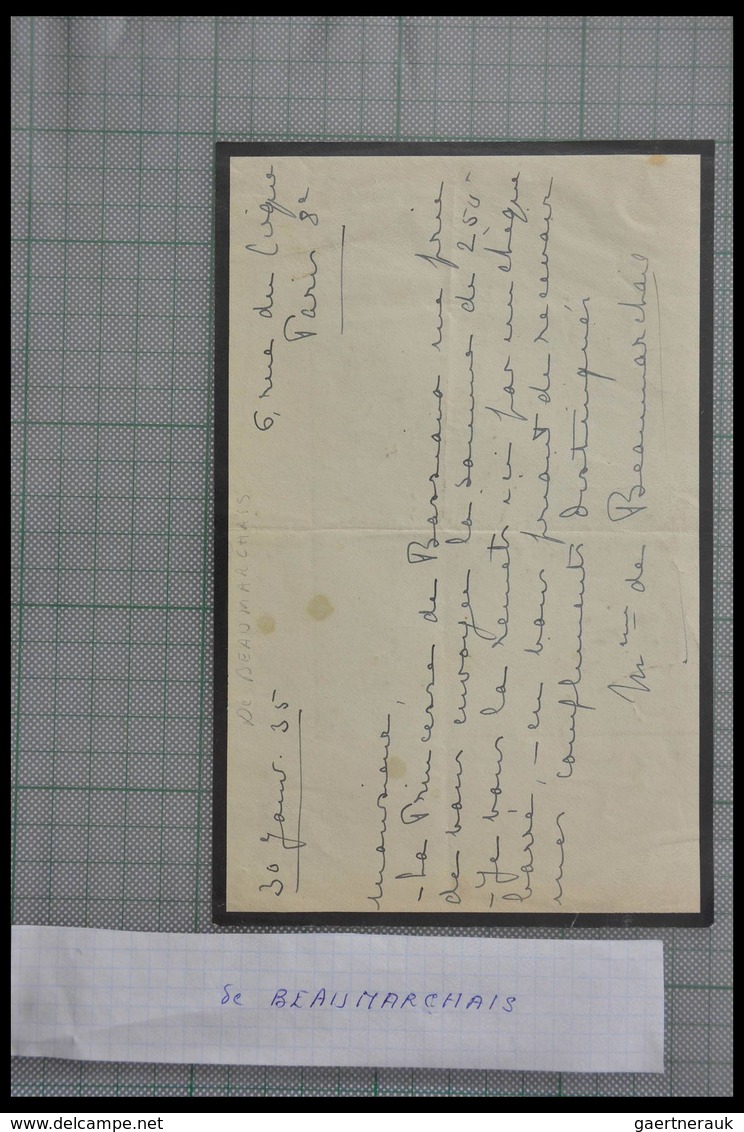 De BEAUMARCHAIS
30 Janv. 35
6, rue du Cirque
Paris 8e
Monsieur,
- La Princesse de Bassiano me prie
de vous envoyer la somme de 250 -
- Je vous la remets ici par un chèque
barré, - en vous priant de recevoir
mes compliments distingués
Mme de Beaumarchais
de BEAUMARCHAIS
gaertnerauk @ delcampe.net